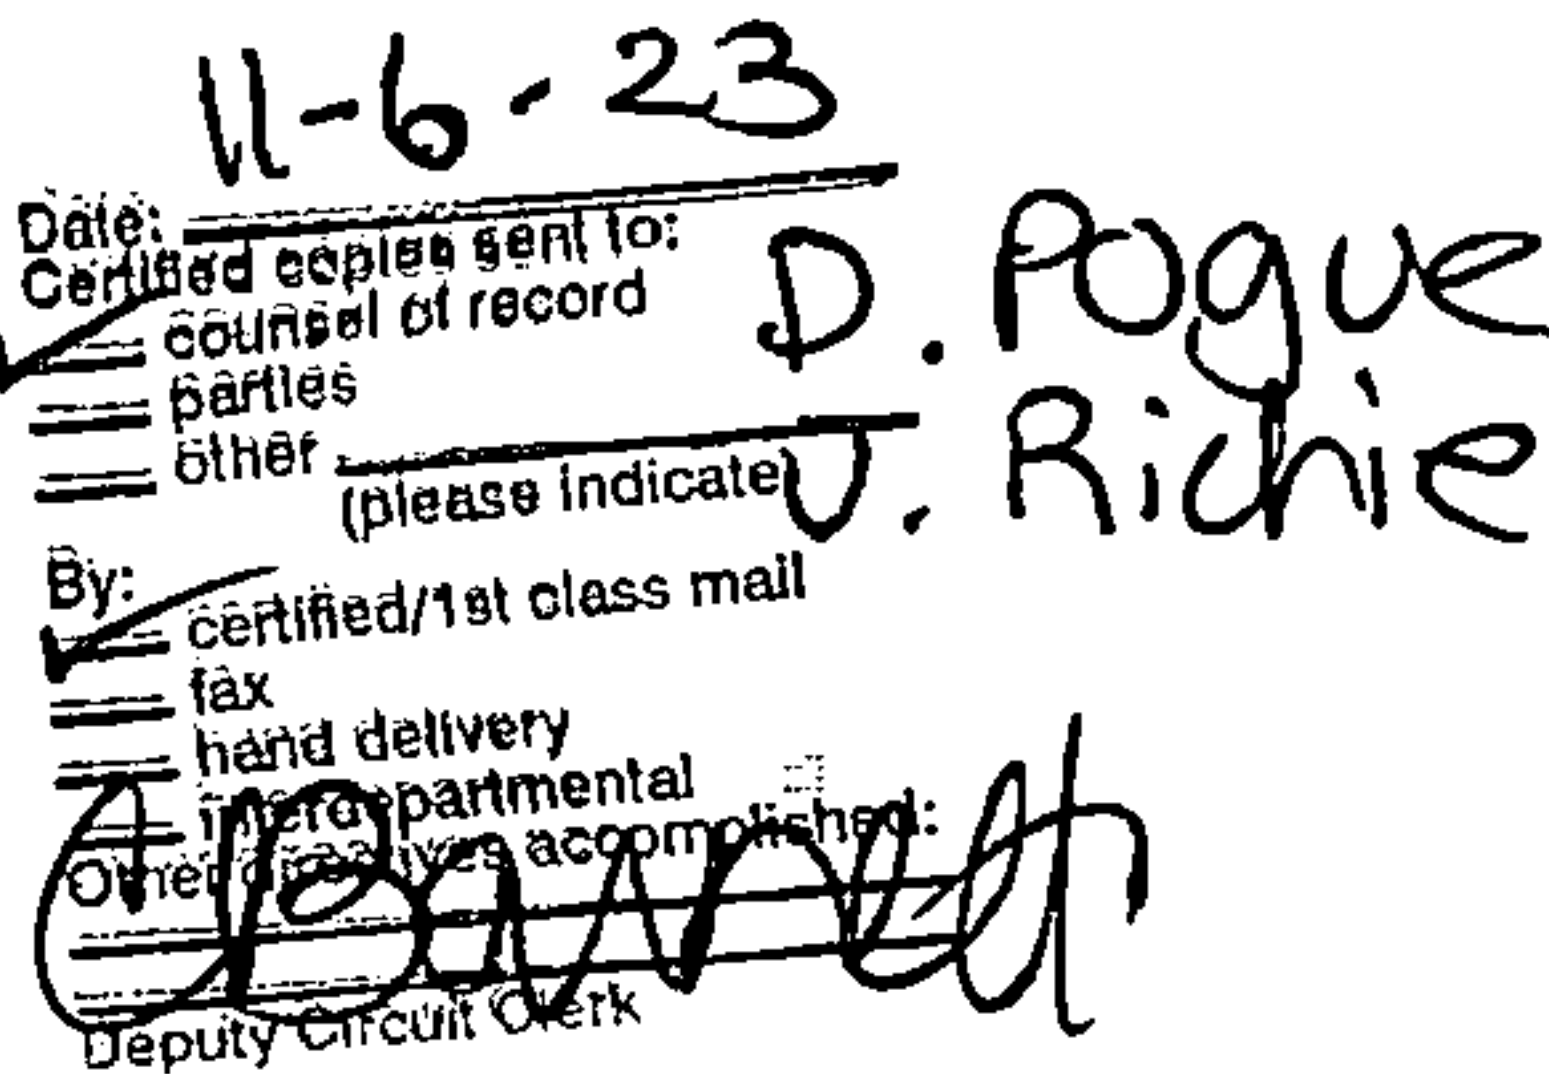 11-6-23
Date:
Certified copies sent to:
✓ counsel of record
D. Pogue
parties
other
(please indicate)
J. Richie
By:
✓ certified/1st class mail
fax
hand delivery
interdepartmental
Other directives accomplished:
Deputy Circuit Clerk